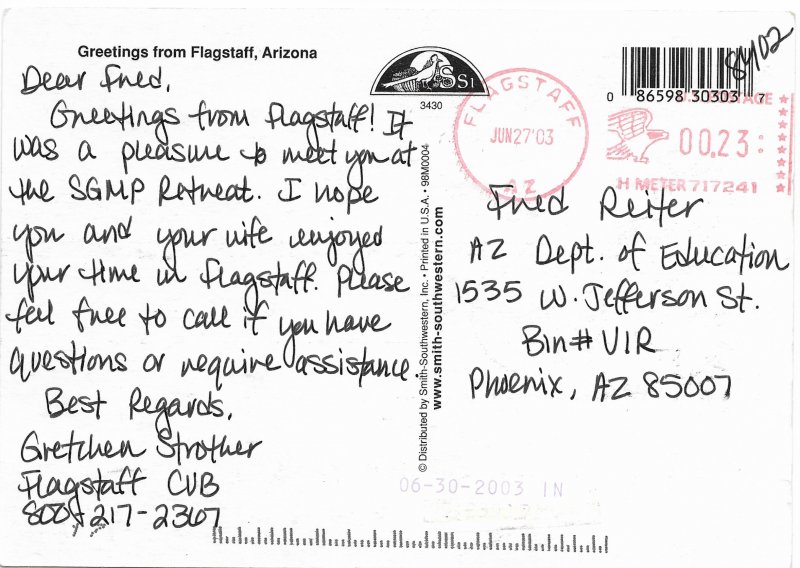 Greetings from Flagstaff, Arizona
Dear Fred,
Greetings from Flagstaff! It
was a pleasure to meet you at
the SGMP Retreat. I hope
you and your wife enjoyed
your time in Flagstaff. Please
feel free to call if you have
questions or require assistance.
Best Regards,
Gretchen Strother
Flagstaff CVB
800-217-2367
SSI
3430
© Distributed by Smith-Southwestern, Inc. • Printed in U.S.A. • 98M0004
www.smith-southwestern.com
FLAGSTAFF
JUN 27 '03
AZ
0 86598 30303 7
00.23
H METER 717241
Fred Reiter
AZ Dept. of Education
1535 W. Jefferson St.
Bin# VIR
Phoenix, AZ 85007
06-30-2003 IN